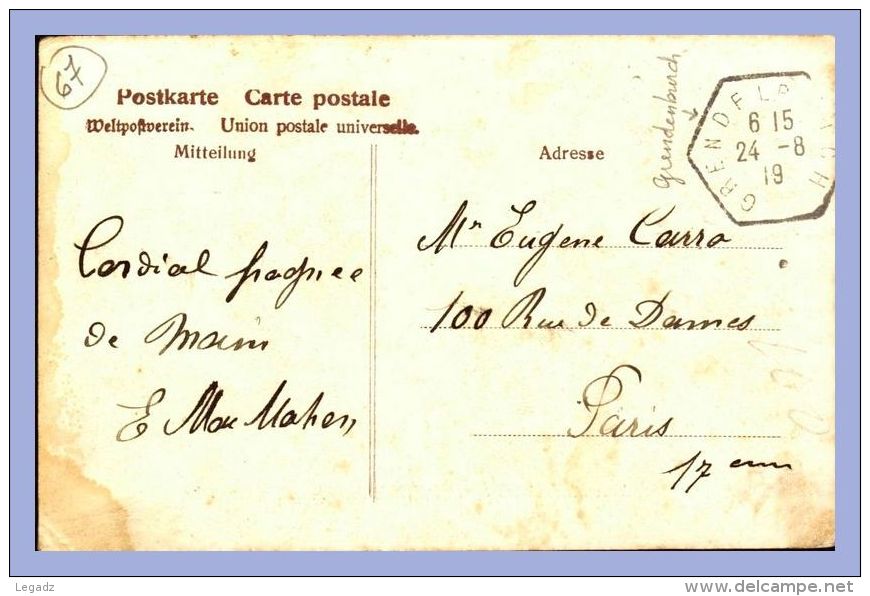 67
Postkarte Carte postale
Weltpostverein. Union postale universelle.
Mitteilung
Adresse
Grendenburch
GRENDELBRUCH
6 15
24 -8
19
Cordial pognee
de main
E Mac Mahon
Mr Eugene Carro
100 Rue de Dames
Paris
17 eme
Legadz
www.delcampe.net